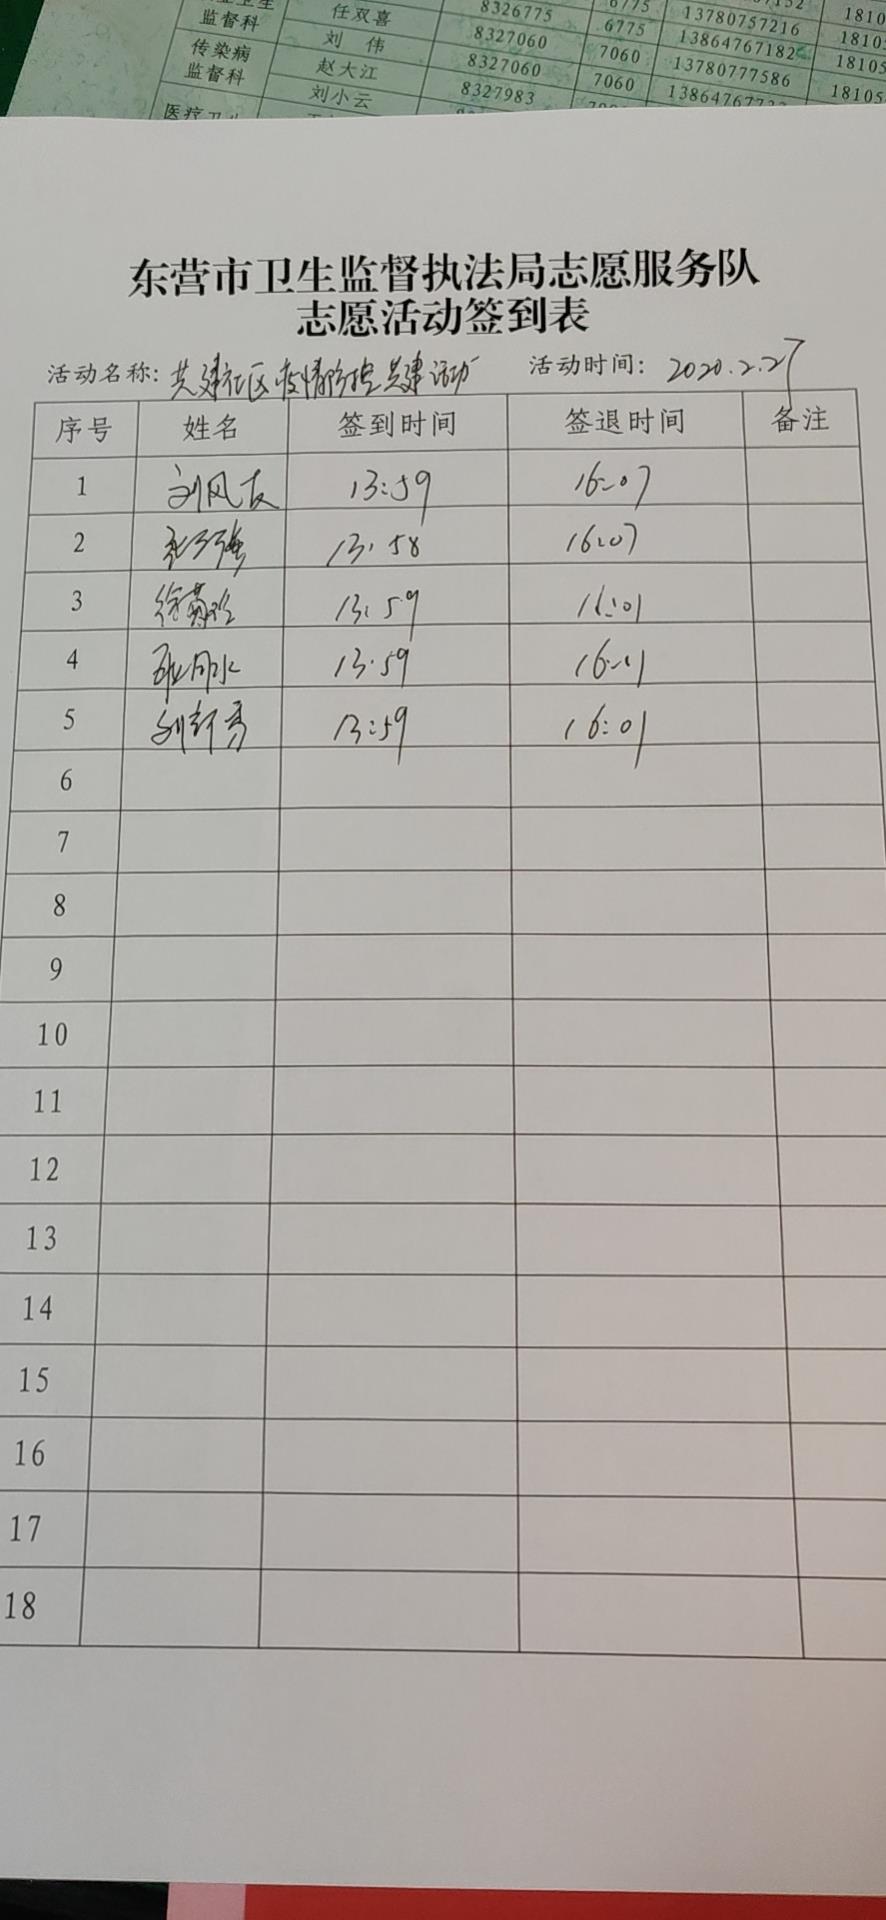 监督科 任双喜 8326775 6775 13780757216 1810
传染病 刘 伟 8327060 7060 13864767182 1810
监督科 赵大江 8327060 7060 13780777586 18105
刘小云 8327983 18105
东营市卫生监督执法局志愿服务队
志愿活动签到表
活动名称：共建社区疫情防控共建活动 活动时间：2020.2.27
序号 姓名 签到时间 签退时间 备注
1 刘风友 13:59 16:07
2 13:58 16:07
3 13:59 16:01
4 13:59 16:01
5 13:59 16:01
6
7
8
9
10
11
12
13
14
15
16
17
18